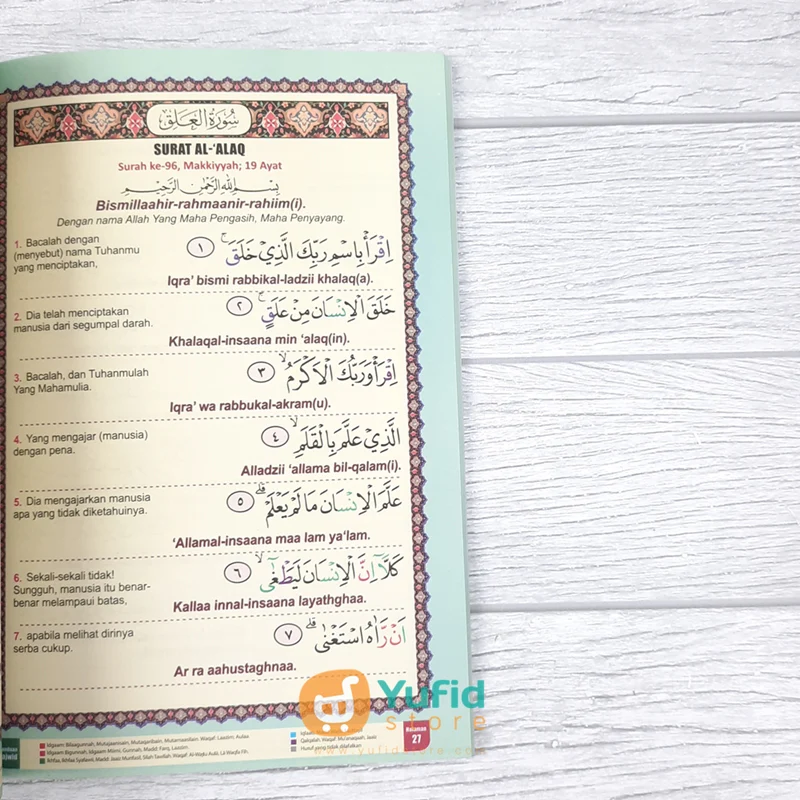 سُورَةُ الْعَلَقِ
SURAT AL-‘ALAQ
Surah ke-96, Makkiyyah; 19 Ayat
بِسْمِ اللهِ الرَّحْمٰنِ الرَّحِيْمِ
Bismillaahir-rahmaanir-rahiim(i).
Dengan nama Allah Yang Maha Pengasih, Maha Penyayang.
1. Bacalah dengan
(menyebut) nama Tuhanmu
yang menciptakan,
اِقْرَأْ بِاسْمِ رَبِّكَ الَّذِيْ خَلَقَۚ ١
Iqra’ bismi rabbikal-ladzii khalaq(a).
2. Dia telah menciptakan
manusia dari segumpal darah.
خَلَقَ الْاِنْسَانَ مِنْ عَلَقٍۚ ٢
Khalaqal-insaana min ‘alaq(in).
3. Bacalah, dan Tuhanmulah
Yang Mahamulia.
اِقْرَأْ وَرَبُّكَ الْاَكْرَمُۙ ٣
Iqra’ wa rabbukal-akram(u).
4. Yang mengajar (manusia)
dengan pena.
الَّذِيْ عَلَّمَ بِالْقَلَمِۙ ٤
Alladzii ‘allama bil-qalam(i).
5. Dia mengajarkan manusia
apa yang tidak diketahuinya.
عَلَّمَ الْاِنْسَانَ مَا لَمْ يَعْلَمْۗ ٥
‘Allamal-insaana maa lam ya’lam.
6. Sekali-sekali tidak!
Sungguh, manusia itu benar-
benar melampaui batas,
كَلَّآ اِنَّ الْاِنْسَانَ لَيَطْغٰىٓۙ ٦
Kallaa innal-insaana layathghaa.
7. apabila melihat dirinya
serba cukup.
اَنْ رَّاٰهُ اسْتَغْنٰىۗ ٧
Ar ra aahustaghnaa.
Yufid
store
www.yufidstore.com
Halaman
27